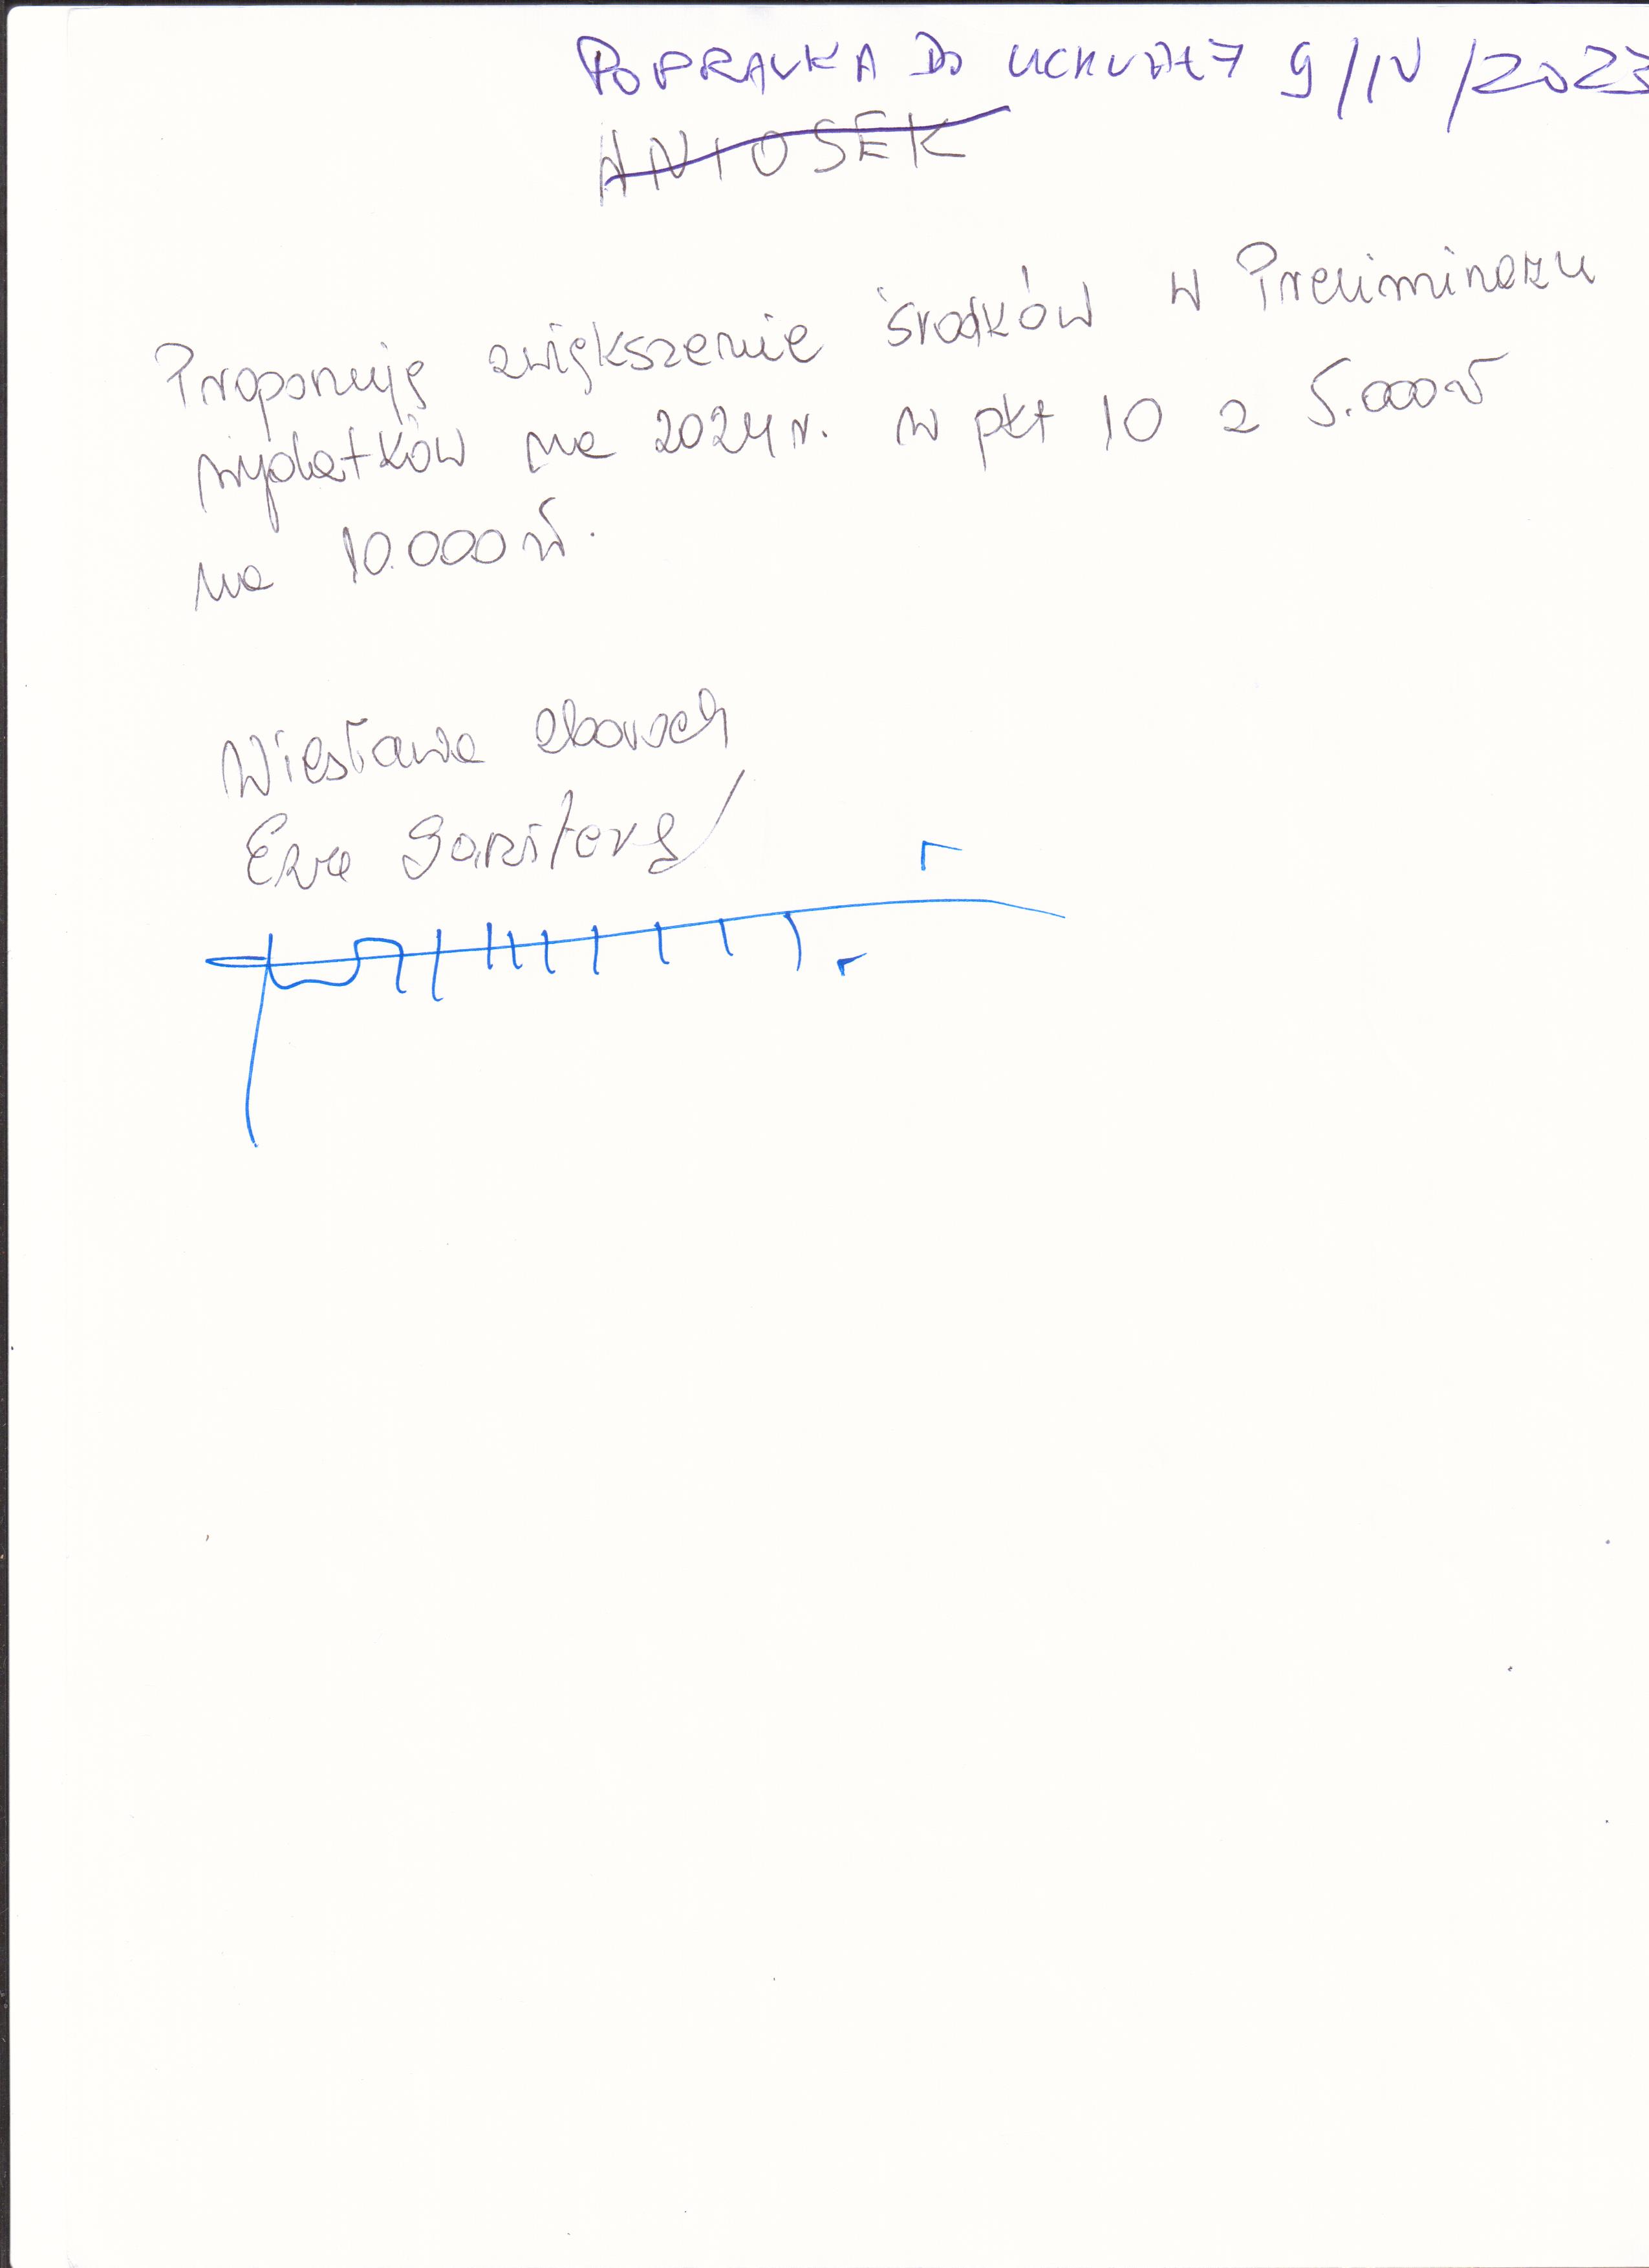 POPRAWKA DO UCHWAŁY 9/IV/2023
WNIOSEK
Proponuję zwiększenie środków w Preliminarzu
wydatków na 2024 r. w pkt 10 z 5.000 zł
na 10.000 zł.
Wiesława
Ewa